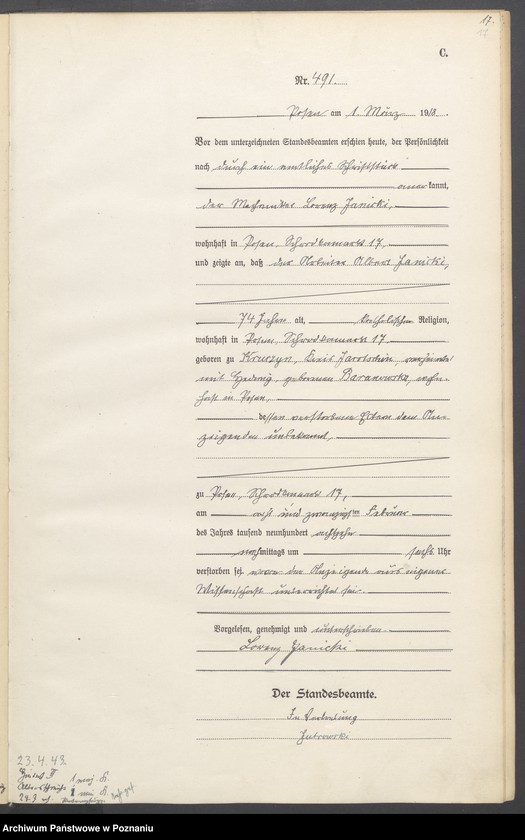 17.
C.
Nr. 491.
Posen am 1. März 1918.
Vor dem unterzeichneten Standesbeamten erschien heute, der Persönlichkeit
nach durch ein amtliches Schriftstück
anerkannt,
der Mechaniker Lorenz Janicki,
wohnhaft in Posen, Schrodkamarkt 17,
und zeigte an, daß der Arbeiter Albert Janicki,
74 Jahre alt, katholischer Religion,
wohnhaft in Posen, Schrodkamarkt 17
geboren zu Kruczyn, Kreis Jarotschin, verheiratet
mit Hedwig, geborenen Baranowska, wohn-
haft in Posen,
dessen verstorbene Eltern dem An-
zeigenden unbekannt,
zu Posen, Schrodkamarkt 17,
am acht und zwanzigsten Februar
des Jahres tausend neunhundert achtzehn
nachmittags um sechs Uhr
verstorben sei, wovon der Anzeigende aus eigener
Wissenschaft unterrichtet sei.
Vorgelesen, genehmigt und unterschrieben.
Lorenz Janicki
Der Standesbeamte.
In Vertretung
23.4.43.
Archiwum Państwowe w Poznaniu